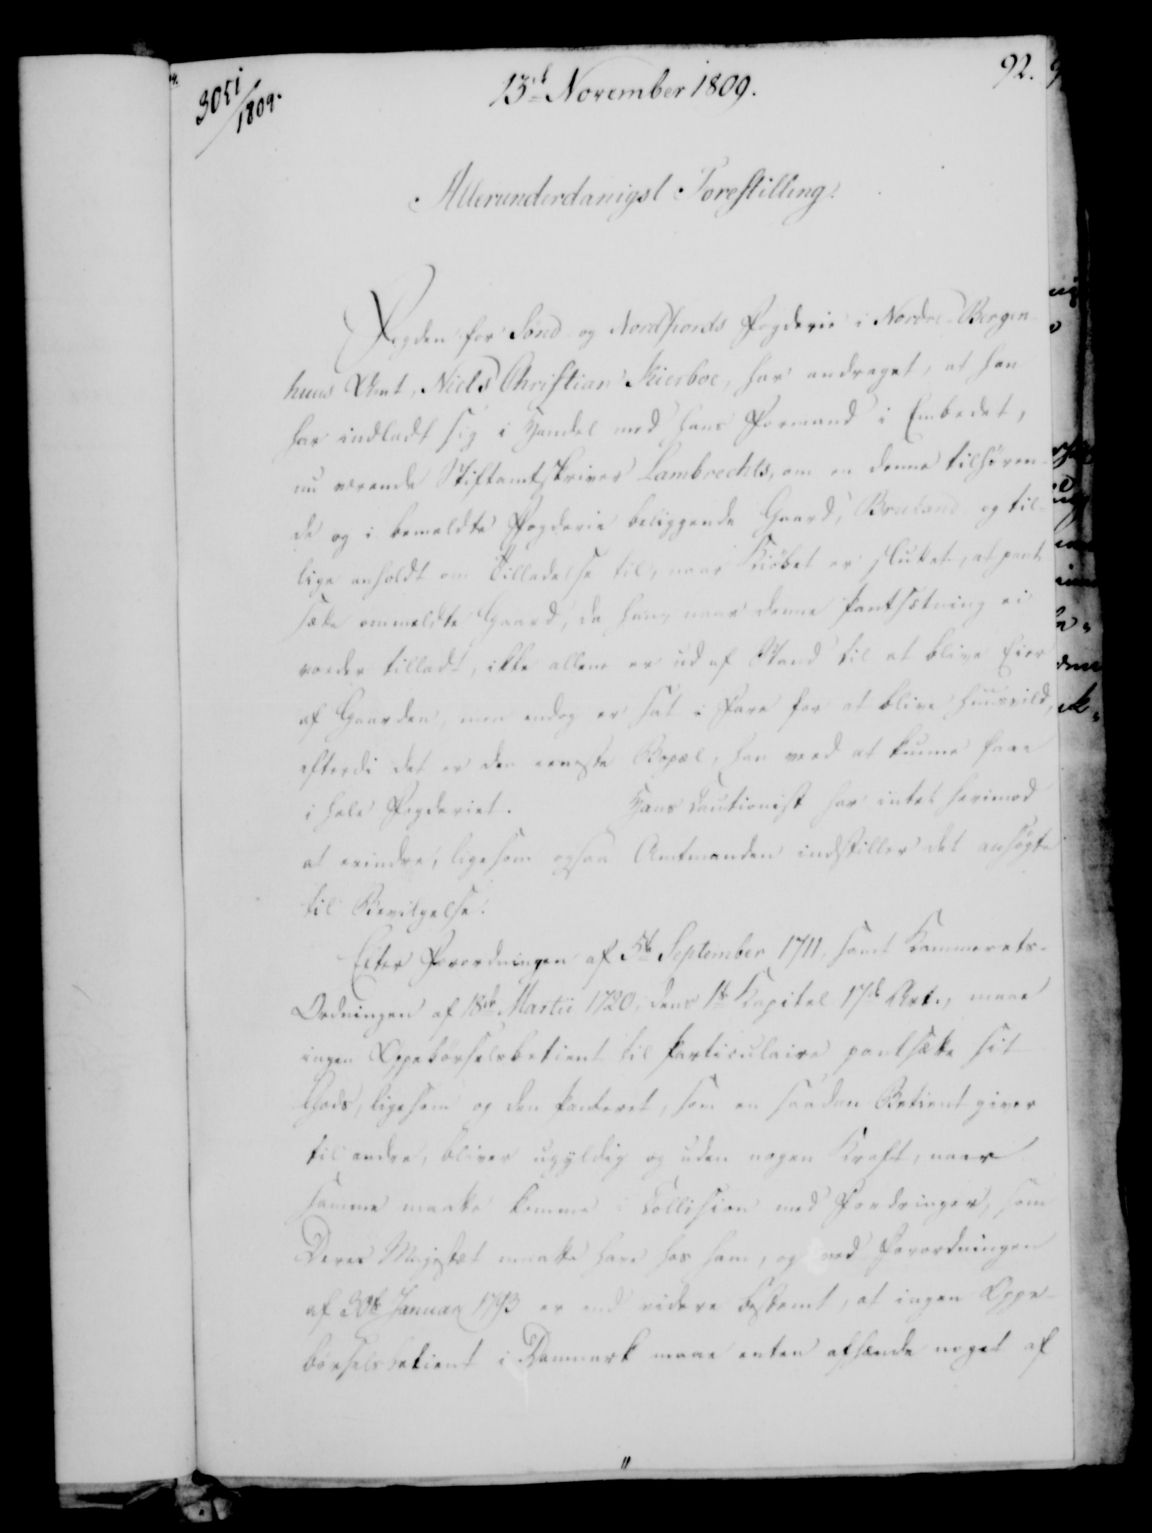 3051/1809.
13d November 1809.
92.
Allerunderdanigst Forestilling!
Fogden for Sønd- og Nordfiords Fogderie i Nordre-Bergen-
huus Amt, Niels Christian Kierboe, har andraget, at han
har indladt sig i Handel med hans Formand i Embedet,
nu værende Stiftamtskriver Lambrechts, om en denne tilhøren-
de og i bemeldte Fogderie beliggende Gaard, Brueland og til-
lige anholdt om Tilladelse til, naar Kiøbet er sluttet, at pant-
sætte ommeldte Gaard, da han, naar denne Pantsætning ei
vorder tilladt, ikke allene er ud af Stand til at blive Eier
af Gaarden, men endog er sat i Fare for at blive huusvild,
efterdi det er den eneste Bopæl, han veed at kunne faae
i hele Fogderiet. Hans Cautionist har intet herimod
at erindre, ligesom ogsaa Amtmanden indstiller det ansøgte
til Bevilgelse.
Efter Forordningen af 5te September 1711, samt Kammerets-
Ordningen af 18de Martii 1720, dens 1te Kapitel 17de Art., maae
ingen Oppebørselsbetient til Particulaire pantsætte sit
Gods, ligesom og den Panteret, som en saadan Betient giver
til andre, bliver ugyldig og uden nogen Kraft, naar
samme maatte komme i Collision med Fordringer, som
Deres Majestæt maatte have hos ham, og ved Forordningen
af 30te Januar 1793 er end videre bestemt, at ingen Oppe-
børselsbetient i Danmark maae enten afhænde noget af